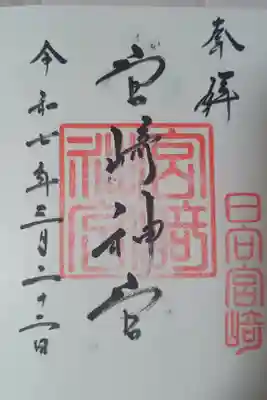 奉拝
宮﨑神宮
令和七年三月二十二日
宮﨑神宮
日向宮﨑